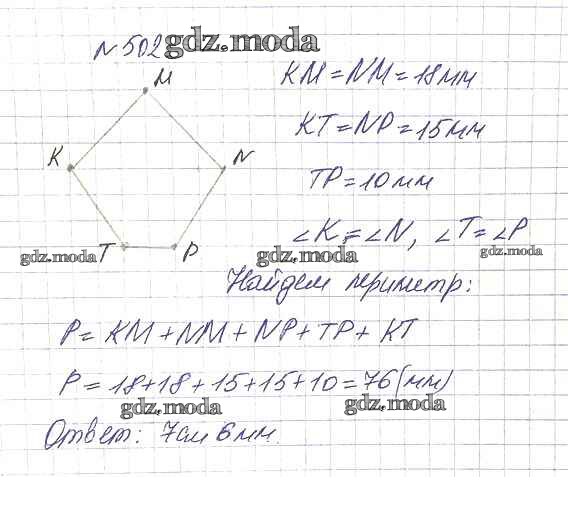 N 502 gdz.moda
M
KM = NM = 18 мм
K
N
KT = NP = 15 мм
TP = 10 мм
T
P
∠K = ∠N, ∠T = ∠P
gdz.moda
gdz.moda
gdz.moda
Найдем периметр:
P = KM + NM + NP + TP + KT
P = 18 + 18 + 15 + 15 + 10 = 76 (мм)
gdz.moda
gdz.moda
Ответ: 7 см 6 мм.